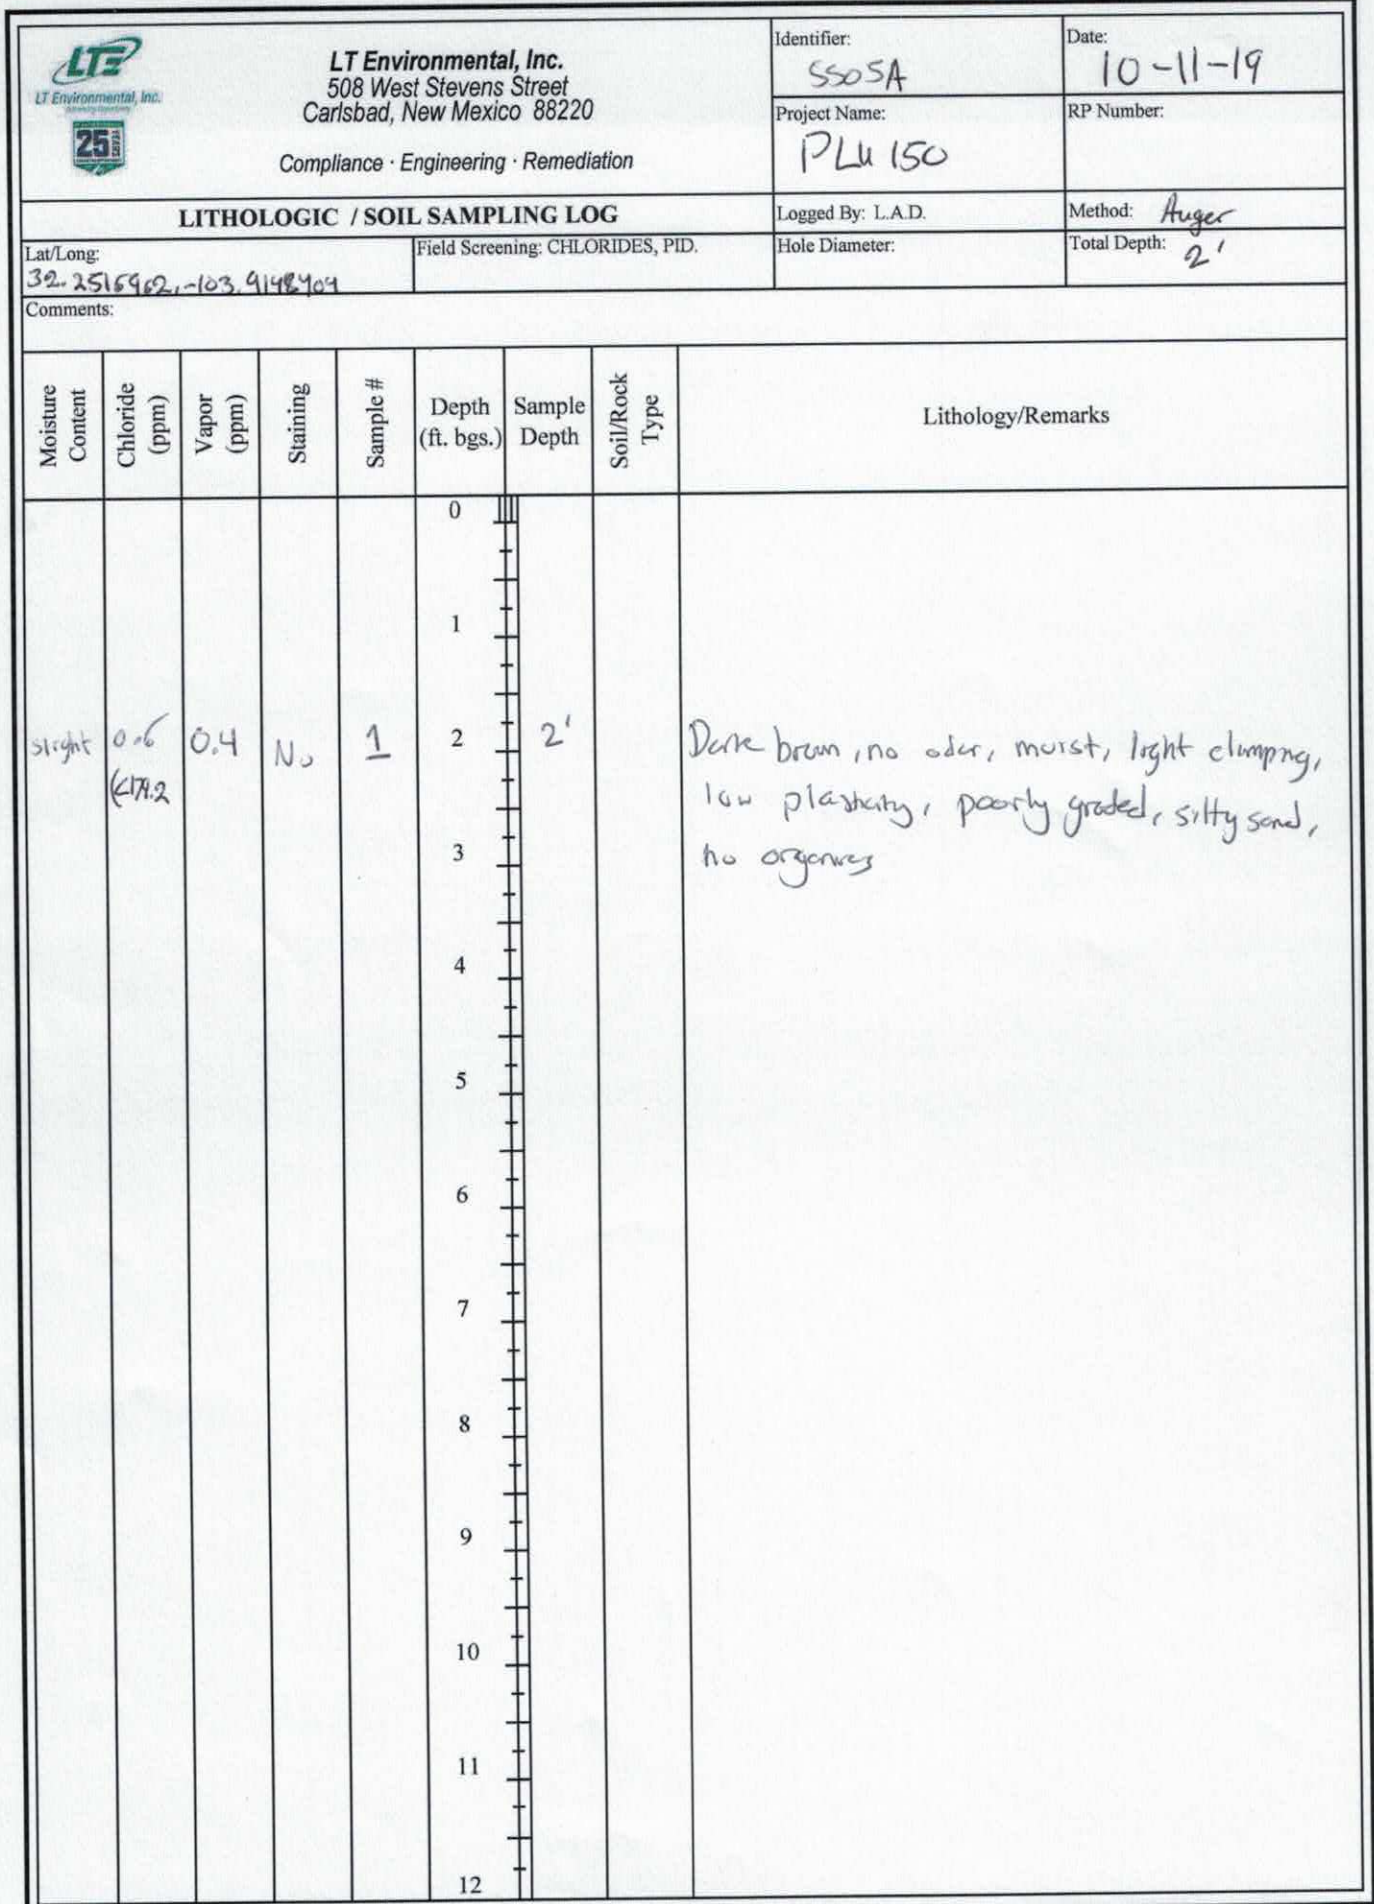 LTE
LT Environmental, Inc.
25
LT Environmental, Inc.
508 West Stevens Street
Carlsbad, New Mexico 88220
Compliance · Engineering · Remediation
Identifier:
SS05A
Date:
10-11-19
Project Name:
PLU 150
RP Number:
LITHOLOGIC / SOIL SAMPLING LOG
Logged By: L.A.D.
Method: Auger
Lat/Long:
Field Screening: CHLORIDES, PID.
Hole Diameter:
Total Depth: 2'
Comments:
Moisture Content
Chloride (ppm)
Vapor (ppm)
Staining
Sample #
Depth (ft. bgs.)
Sample Depth
Soil/Rock Type
Lithology/Remarks
0
1
slight 0.6 0.4 No 1 2 2' Dark brown, no odor, moist, light clumping,
(<179.2
low plasticity, poorly graded, silty sand,
3 no organics
4
5
6
7
8
9
10
11
12